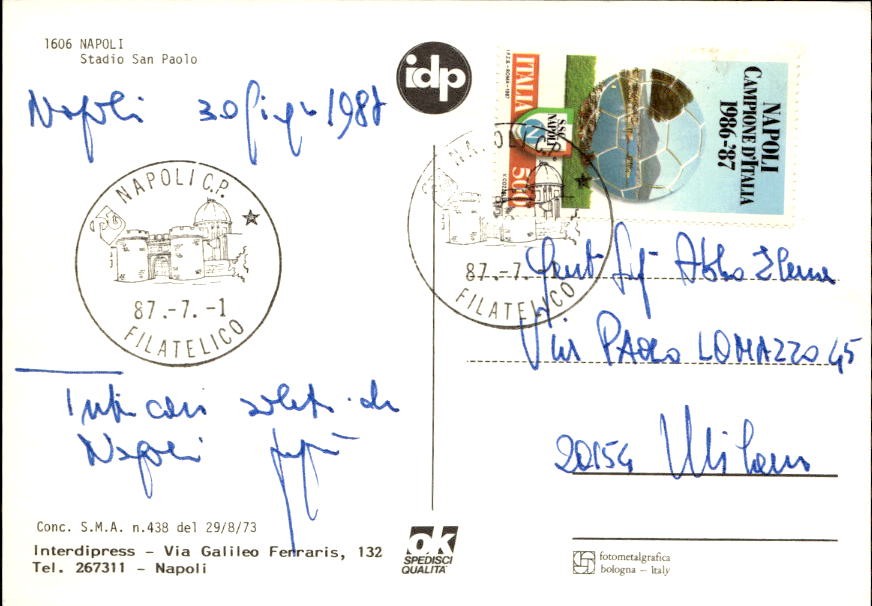 1606 NAPOLI
Stadio San Paolo
Napoli 30 Giugno 1987
NAPOLI C.P.
87.-7.-1
FILATELICO
Tanti cari saluti da
Napoli
Conc. S.M.A. n.438 del 29/8/73
Interdipress - Via Galileo Ferraris, 132
Tel. 267311 - Napoli
idp
ok
SPEDISCI
QUALITA'
I.P.Z.S. - ROMA - 1987
ITALIA
500
SSC
NAPOLI
N
NAPOLI
CAMPIONE D'ITALIA
1986-'87
NAPOLI C.P.
87.-7.
FILATELICO
Gent. Sig. Abba Elena
Via PAOLO LOMAZZO 45
20154 Milano
fotometalgrafica
bologna - italy